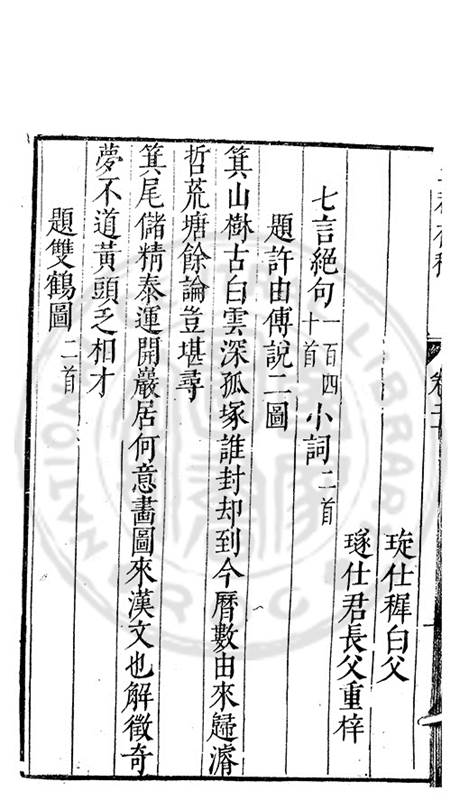 卷二
琁仕穉白父
璲仕君長父重梓
七言絕句一百四十首小詞二首
題許由傳說二圖
箕山樹古白雲深孤塚誰封却到今曆數由來歸濬
哲荒塘餘論豈堪尋
箕尾儲精泰運開巖居何意畫圖來漢文也解徵奇
夢不道黃頭乏相才
題雙鶴圖二首